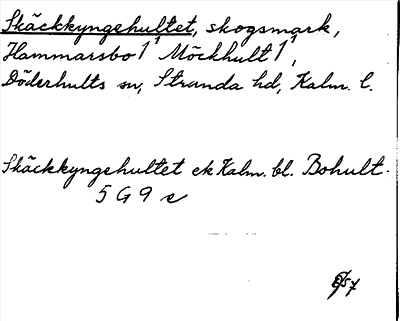 Skäckkyngehultet, skogsmark,
Hammarsbo 1¹, Möckhult 1¹,
Döderhults sn, Stranda hd, Kalm. l.
Skäckkyngehultet ek Kalm. bl. Bohult.
5 G 9 e